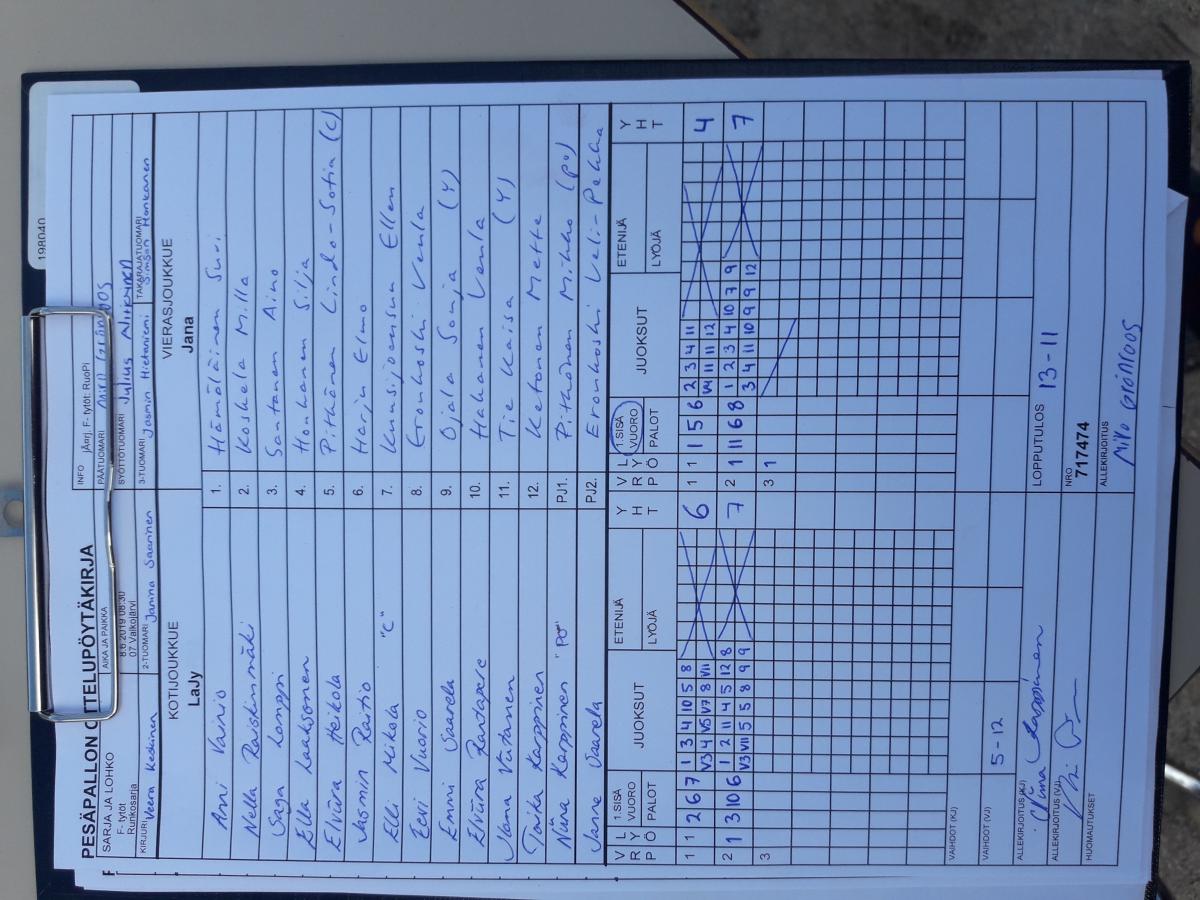 198040
PESÄPALLON OTTELUPÖYTÄKIRJA
SARJA JA LOHKO
F- tytöt
Runkosarja
AIKA JA PAIKKA
8.6.2019 08:30
07 Valkojärvi
INFO jÄorj. F- tytöt: RuoPi
PÄÄTUOMARI
SYÖTTÖTUOMARI Julius Nikkinen
KIRJURI Veera Keskinen
2-TUOMARI Janina Saarinen
3-TUOMARI Jasmin Hietaniemi
TAKARAJATUOMARI Simeon Honkanen
KOTIJOUKKUE
LaJy
VIERASJOUKKUE
Jana
Anni Vainio 1. Hämäläinen Suvi
Nella Raiskinmäki 2. Koskela Milla
Saga Lamppi 3. Santanen Aino
Ella Laaksonen 4. Honkanen Silja
Elviira Heikola 5. Pitkänen Linda-Sofia (C)
Jasmin Raitio 6. Harju Elmo
Elli Mikola "C" 7. Kuusijoensuu Ellen
Eevi Vuorio 8. Eronkoski Venla
Emmi Saarela 9. Ojala Sonja (Y)
Elviira Rantapere 10. Hakanen Venla
Vana Viitanen 11. Tie Kaisa (Y)
Taika Karppinen 12. Ketonen Mette
Niina Karppinen "PJ" PJ1. Pitkänen Mikko (PJ)
Janne Saarela PJ2. Eronkoski Veli-Pekka
V R P L Y Ö 1.SISÄ VUORO PALOT JUOKSUT ETENIJÄ LYÖJÄ Y H T
V R P L Y Ö 1.SISÄ VUORO PALOT JUOKSUT ETENIJÄ LYÖJÄ Y H T
1 1 2 6 7 1 3 4 10 5 8 6
V3 4 V5 V7 8 VII
1 1 1 5 6 2 3 4 11 4
V4 11 11 12
2 1 3 10 6 1 2 11 4 5 12 8 7
V3 VII 5 5 8 9 9
2 1 11 6 8 1 2 3 4 10 7 9 7
3 4 11 10 9 9 12
3
3 1
VAIHDOT (KJ)
VAIHDOT (VJ) 5-12
ALLEKIRJOITUS (KJ) Niina Karppinen
ALLEKIRJOITUS (VJ)
HUOMAUTUKSET
LOPPUTULOS 13-11
NRO
717474
ALLEKIRJOITUS
Miro Grönroos